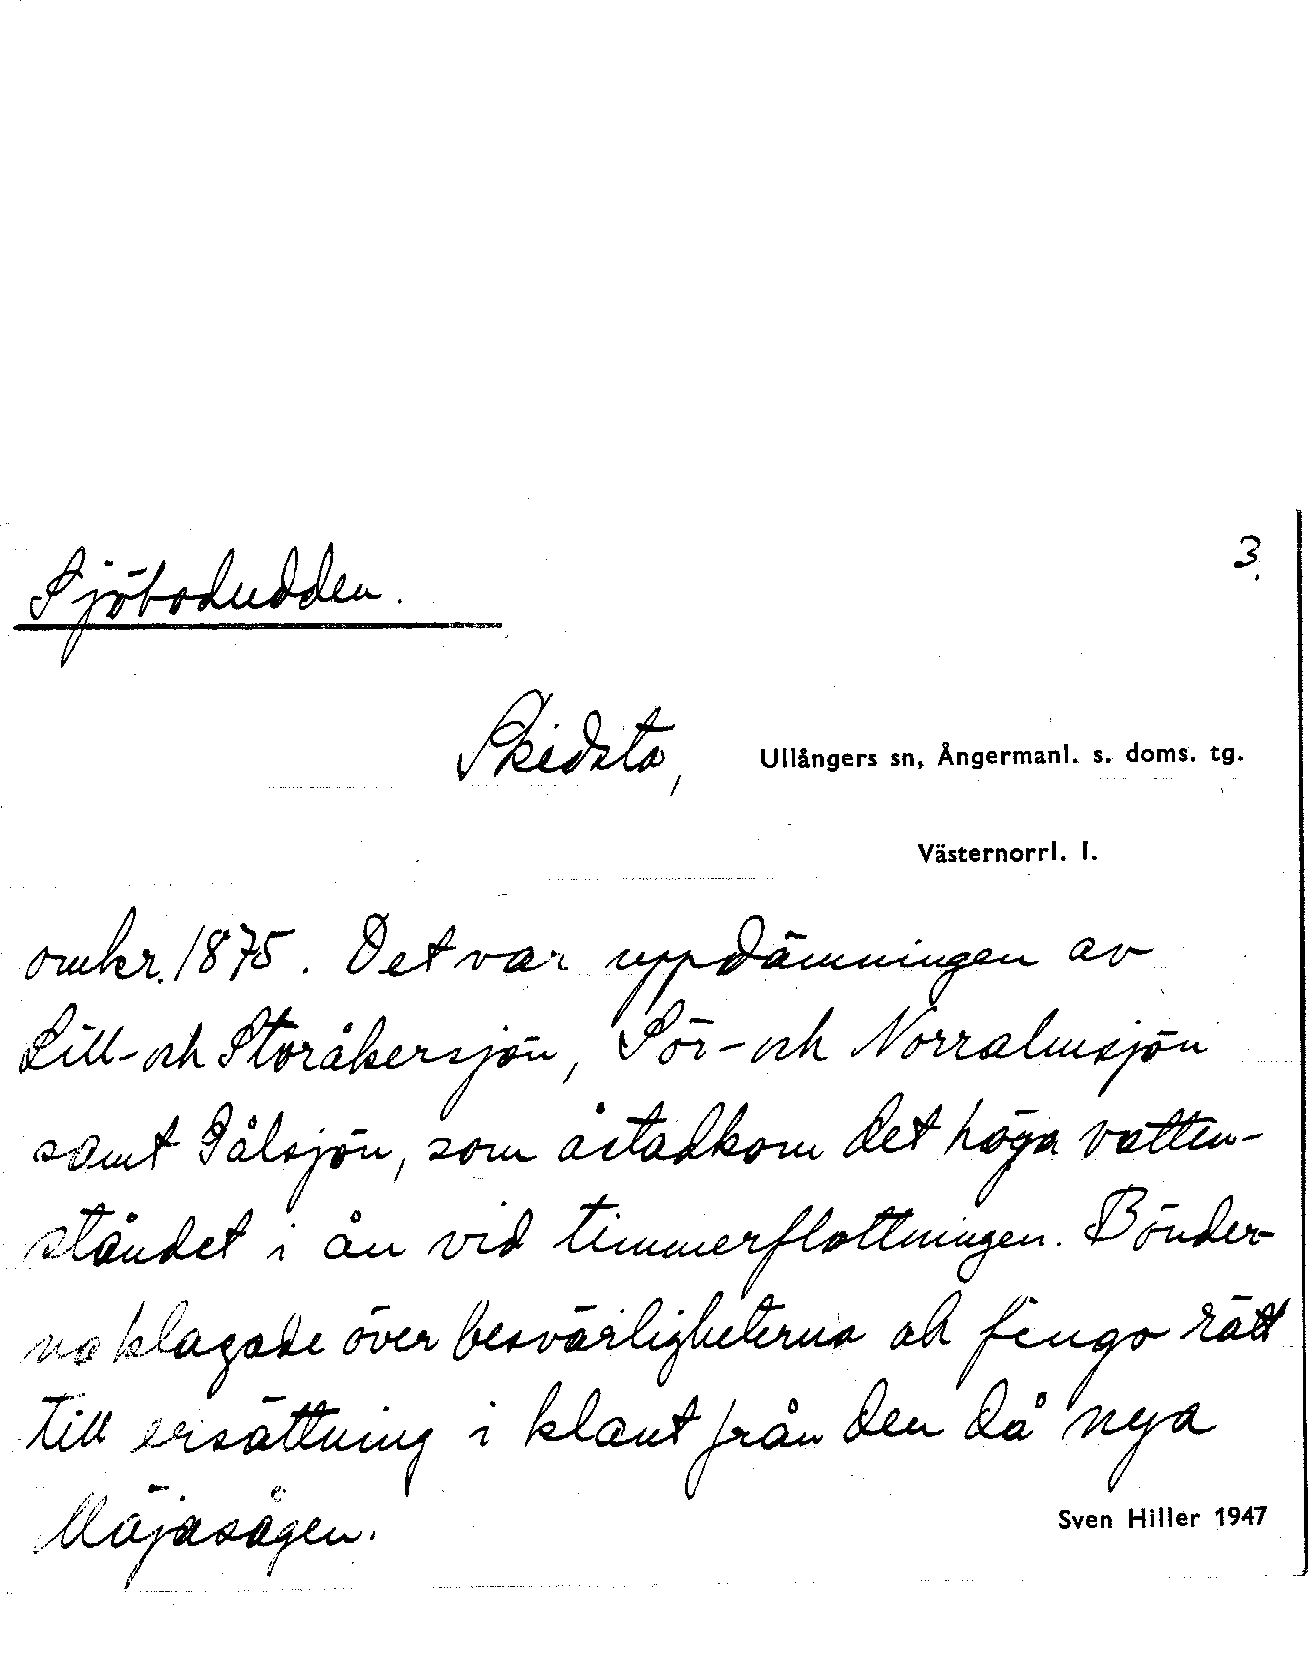 Sjöbodudden.
3.
Skedsta,
Ullångers sn, Ångermanl. s. doms. tg.
Västernorrl. l.
omkr. 1875. Det var uppdämningen av
Lill- och Storåkersjön, Sör- och Norralmsjön
samt Gålsjön, som åstadkom det höga vatten-
ståndet i ån vid timmerflottningen. Bönder-
na klagade över besvärligheterna och fingo rätt
till ersättning i klant från den då nya
Mäjasågen.
Sven Hiller 1947